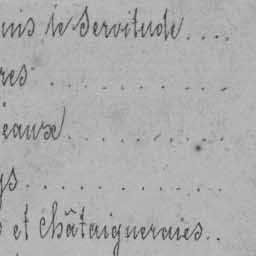 uis le Servitude....
res ............
eaux ..........
ys ............
s et Châtaigneraies..